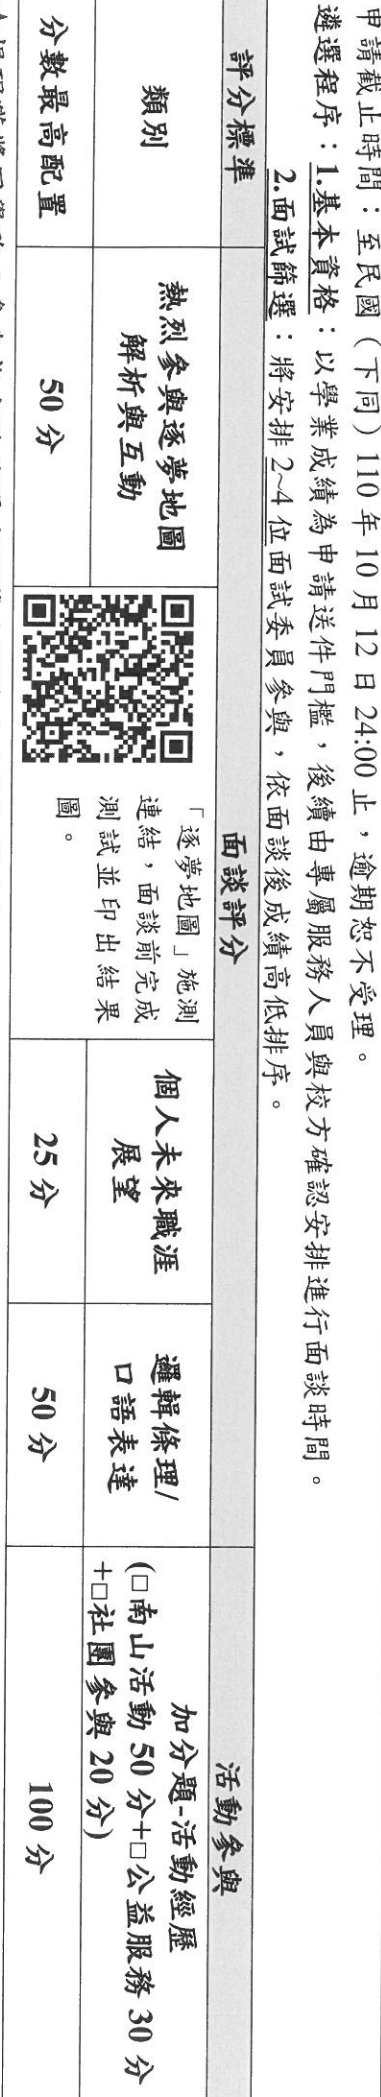 申請截止時間：至民國（下同）110 年 10 月 12 日 24:00 止，逾期恕不受理。
遴選程序：1.基本資格：以學業成績為申請送件門檻，後續由專屬服務人員與校方確認安排進行面談時間。
2.面試篩選：將安排 2~4 位面試委員參與，依面談後成績高低排序。
評分標準
面談評分
活動參與
類別
熱烈參與逐夢地圖
解析與互動
「逐夢地圖」施測
連結，面談前完成
測試並印出結果
圖。
個人未來職涯
展望
邏輯條理/
口語表達
加分題-活動經歷
(□南山活動 50 分+□公益服務 30 分
+□社團參與 20 分)
分數最高配置
50 分
25 分
50 分
100 分